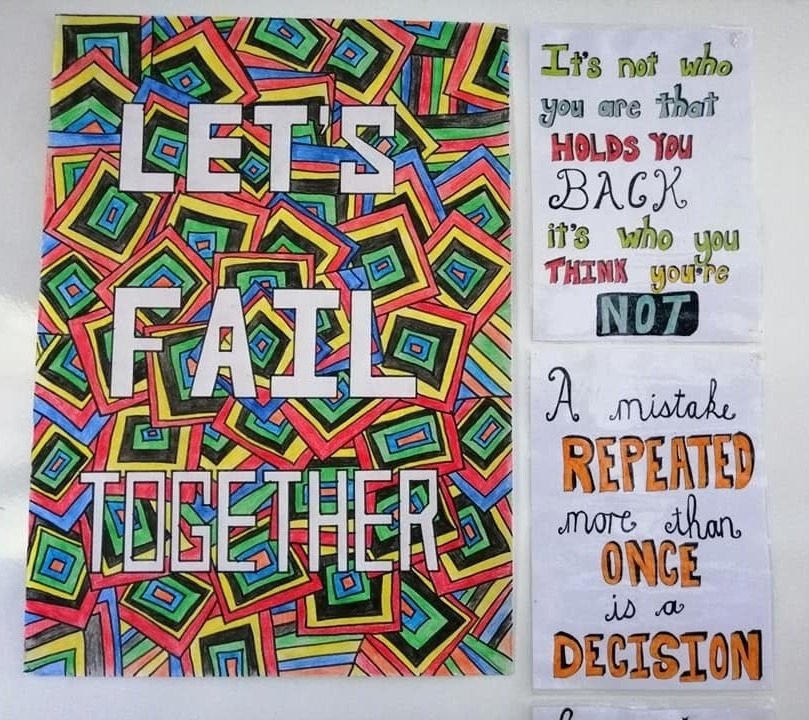 LET'S
FAIL
TOGETHER
It's not who
you are that
HOLDS YOU
BACK
it's who you
THINK you're
NOT
A mistake
REPEATED
more than
ONCE
is a
DECISION